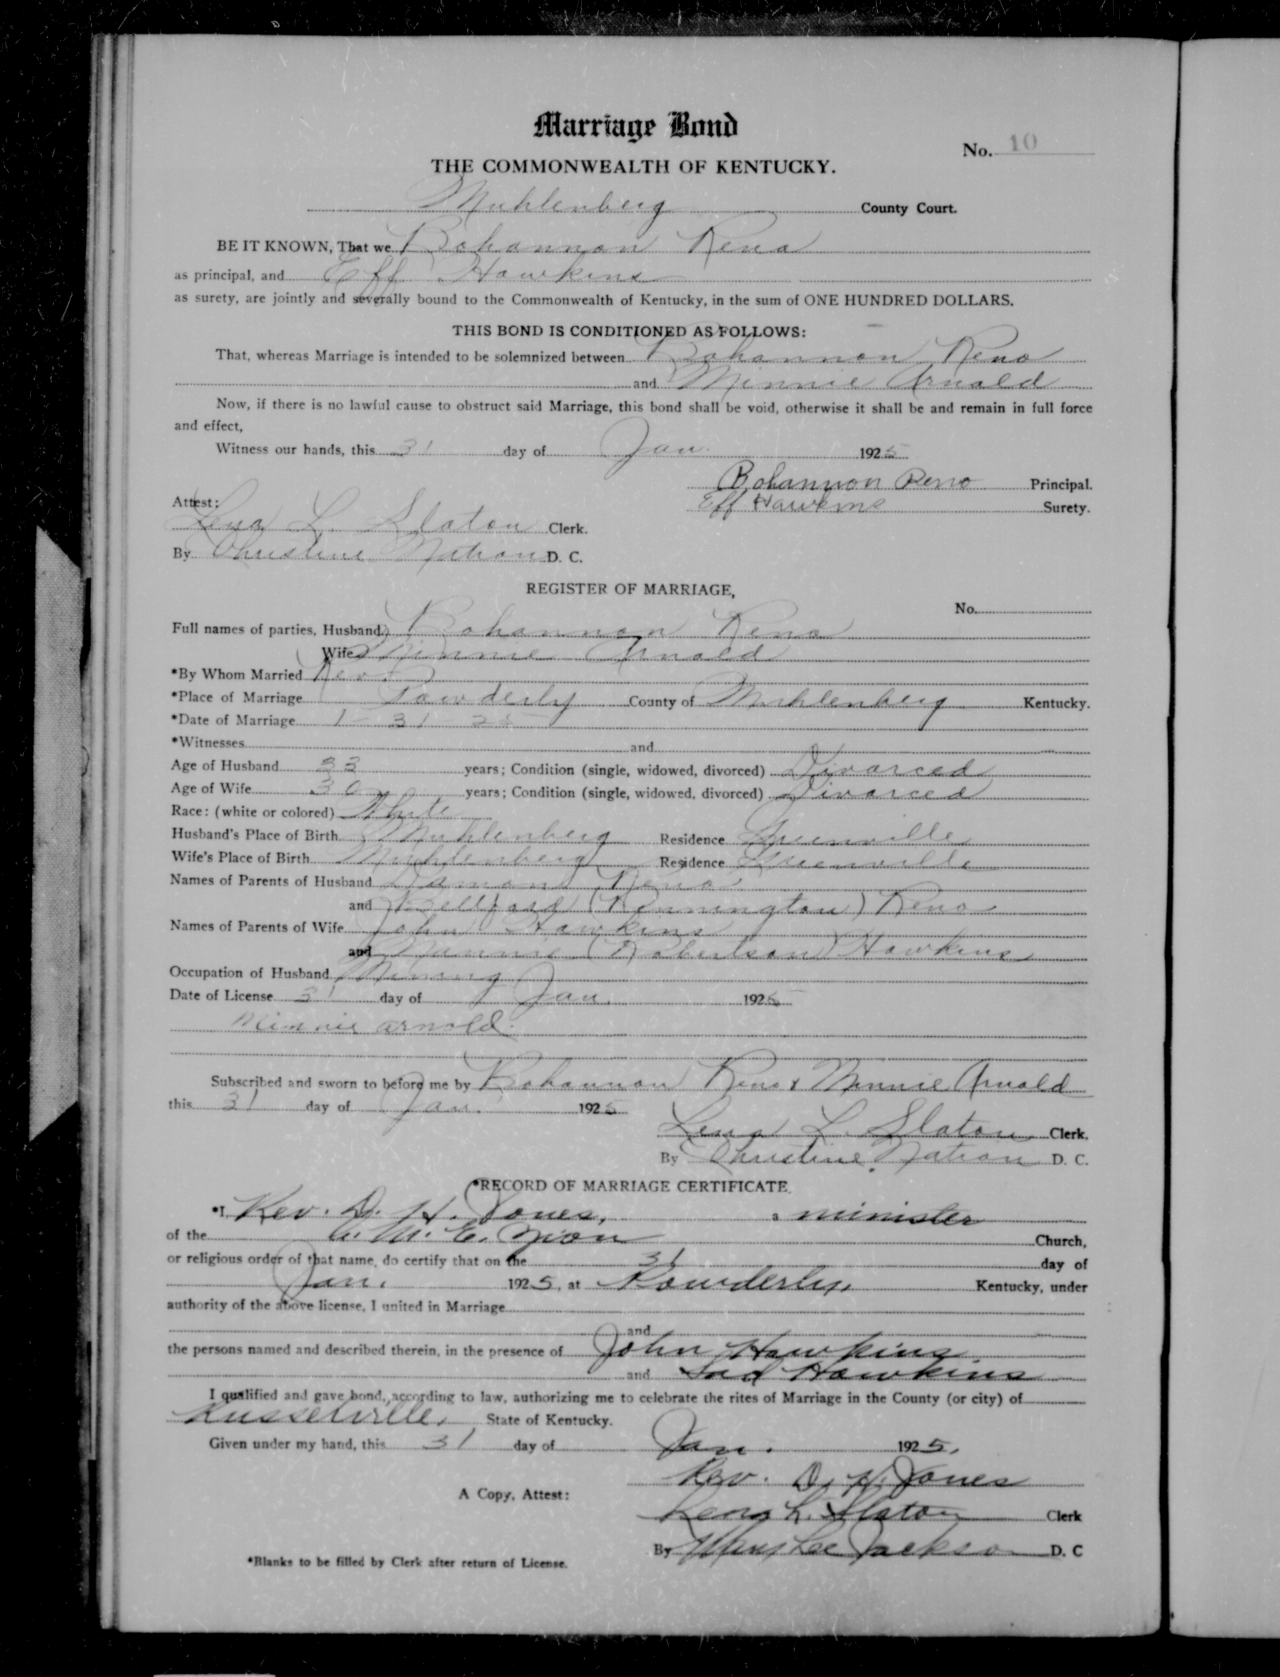 Marriage Bond
No. 10
THE COMMONWEALTH OF KENTUCKY.
Muhlenberg County Court.
BE IT KNOWN, That we Bohannon Reno
as principal, and Eff Hawkins
as surety, are jointly and severally bound to the Commonwealth of Kentucky, in the sum of ONE HUNDRED DOLLARS.
THIS BOND IS CONDITIONED AS FOLLOWS:
That, whereas Marriage is intended to be solemnized between Bohannon Reno
and Minnie Arnold
Now, if there is no lawful cause to obstruct said Marriage, this bond shall be void, otherwise it shall be and remain in full force
and effect,
Witness our hands, this 31 day of Jan. 1925
Bohannon Reno Principal.
Eff Hawkins Surety.
Attest:
Lena L. Slaton Clerk.
By Christine Nation D. C.
REGISTER OF MARRIAGE,
No.
Full names of parties, Husband Bohannon Reno
Wife Minnie Arnold
*By Whom Married Rev.
*Place of Marriage Powderly County of Muhlenberg Kentucky.
*Date of Marriage 1-31-25
*Witnesses and
Age of Husband 33 years; Condition (single, widowed, divorced) Divorced
Age of Wife 30 years; Condition (single, widowed, divorced) Divorced
Race: (white or colored) White
Husband's Place of Birth Muhlenberg Residence Greenville
Wife's Place of Birth Muhlenberg Residence Greenville
Names of Parents of Husband Reno
and (Pennington) Reno
Names of Parents of Wife John Hawkins
and (Robertson) Hawkins
Occupation of Husband Mining
Date of License 31 day of Jan. 1925
Minnie Arnold.
Subscribed and sworn to before me by Bohannon Reno & Minnie Arnold
this 31 day of Jan. 1925
Lena L. Slaton Clerk.
By Christine Nation D. C.
*RECORD OF MARRIAGE CERTIFICATE.
*I, Rev. D. H. Jones, a minister
of the M. E. Zion Church,
or religious order of that name, do certify that on the 31 day of
Jan. 1925, at Powderly, Kentucky, under
authority of the above license, I united in Marriage
and
the persons named and described therein, in the presence of John Hawkins
and Hawkins
I qualified and gave bond, according to law, authorizing me to celebrate the rites of Marriage in the County (or city) of
Russelville, State of Kentucky.
Given under my hand, this 31 day of Jan. 1925.
Rev. D. H. Jones
A Copy, Attest:
Lena L. Slaton Clerk
By Mary Lee Jackson D. C
*Blanks to be filled by Clerk after return of License.